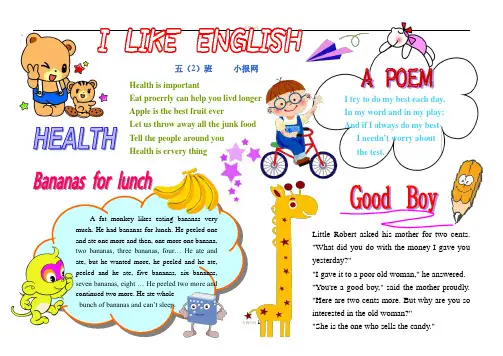 I LIKE ENGLISH
五（2）班 小报网
HEALTH
Health is important
Eat procrrly can help you livd longer
Apple is the best fruit ever
Let us throw away all the junk food
Tell the people around you
Health is crvery thing
A POEM
I try to do my best each day.
In my word and in my play;
And if I always do my best
I needn't worry about
the test.
Bananas for lunch
A fat monkey likes eating bananas very
much. He had bananas for lunch. He peeled one
and ate one more and then, one more one banana,
two bananas, three bananas, four… He ate and
ate, but he wanted more, he peeled and he ate,
peeled and he ate, five bananas, six bananas,
seven bananas, eight … He peeled two more and
continued two more. He ate whole
bunch of bananas and can't sleep.
Good Boy
Little Robert asked his mother for two cents.
"What did you do with the money I gave you
yesterday?"
"I gave it to a poor old woman," he answered.
"You're a good boy," said the mother proudly.
"Here are two cents more. But why are you so
interested in the old woman?"
"She is the one who sells the candy."